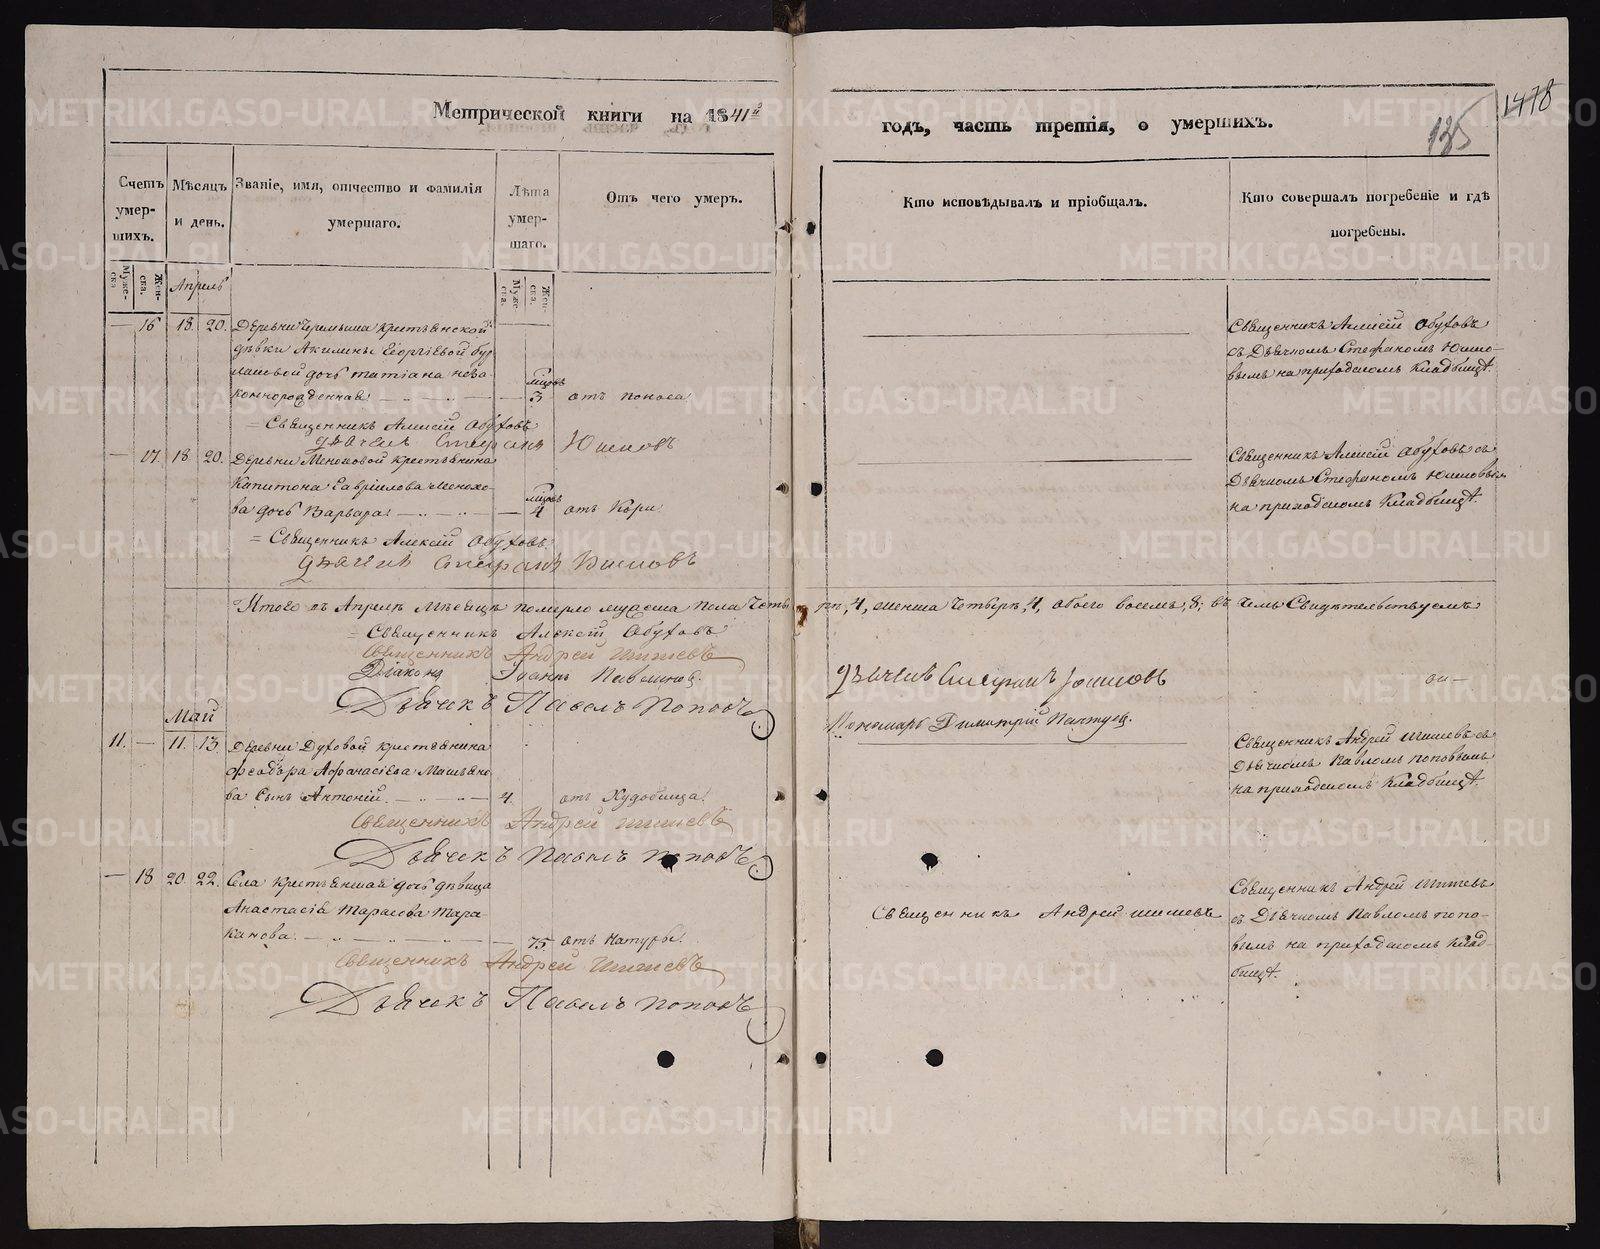 Метрической книги на 1841й
годъ, часть третія, о умершихъ.
1478
135
Счетъ умер-шихъ.
Муже-ска
Жен-ска.
Мѣсяцъ и день.
Званіе, имя, отчество и фамилія умершаго.
Лѣта умер-шаго.
Муже-ска
Жен-ска.
Отъ чего умеръ.
Кто исповѣдывалъ и пріобщалъ.
Кто совершалъ погребеніе и гдѣ погребены.
Апрель
— 16 18. 20. Деревни крестьянской
дѣвки Акилины Георгіевой Бур
лашевой дочь Татіана неза
коннорожденная — мцовъ 3 отъ поноса
= Священникъ Алексій Обуховъ
Дьячекъ Стефанъ Юшковъ
Священникъ Алексій Обуховъ
съ Дьячкомъ Стефаномъ Юшко-
вымъ на приходскомъ Кладбищѣ.
— 17. 18. 20. Деревни крестьянина
Капитона Гавріилова
ва дочь Варвара — мцовъ 4 отъ Кори
= Священникъ Алексій Обуховъ
Дьячекъ Стефанъ Юшковъ
Священникъ Алексій Обуховъ съ
Дьячкомъ Стефаномъ Юшковымъ
на приходскомъ Кладбищѣ.
Итого въ Апрелѣ Мѣсяцѣ померло мужеска пола Четы ре, 4, женска Четыре, 4, обоего восемь, 8; въ чемъ Свидѣтельствуемъ
= Священникъ Алексій Обуховъ
Священникъ Андрей Шишевъ
Діаконъ Іоаннъ Павлиновъ
Дьячекъ Павелъ Поповъ
Дьячекъ Стефанъ Юшковъ
Пономарь Димитрій
Май
11. — 11. 13. Деревни Духовой крестьянина
Феодора Афанасіева
ва Сынъ Антоній. — 4. отъ Худобища.
Священникъ Андрей Шишевъ
Дьячекъ Павелъ Поповъ
Священникъ Андрей Шишевъ съ
Дьячкомъ Павломъ Поповымъ
на приходскомъ Кладбищѣ.
— 18 20. 22. Села крестьянская дочь дѣвица
Анастасія Тарасова Тара
канова. — 75. отъ Натуры.
Священникъ Андрей Шишевъ
Дьячекъ Павелъ Поповъ
Священникъ Андрей Шишевъ
Священникъ Андрей Шишевъ
съ Дьячкомъ Павломъ Попо-
вымъ на приходскомъ Клад-
бищѣ.
METRIKI.GASO-URAL.RU